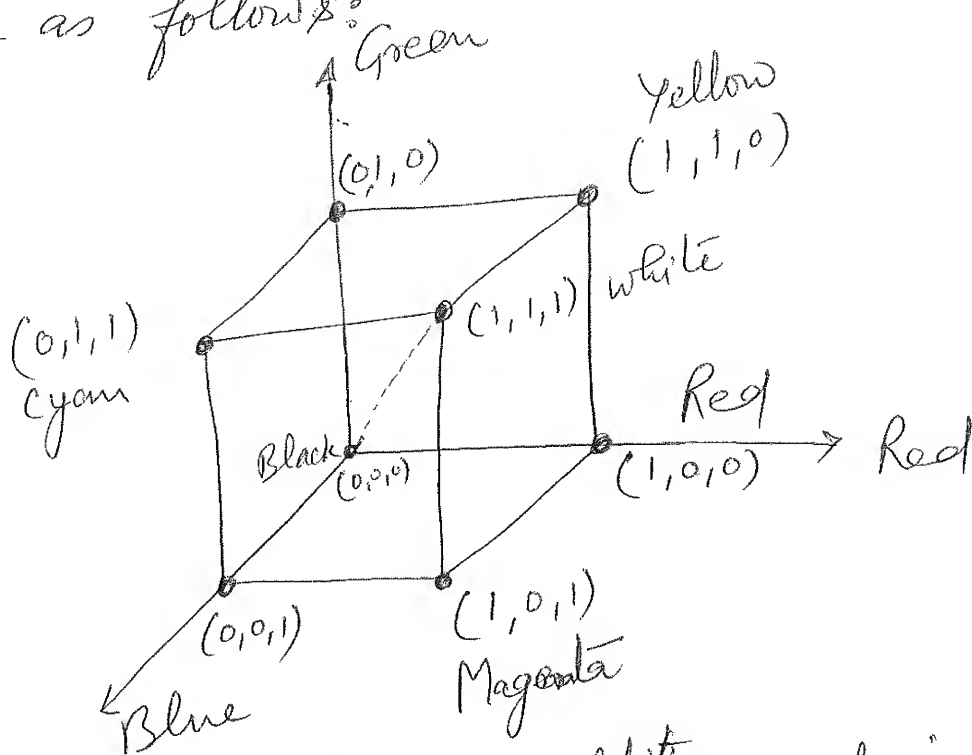 as follows:
Green
Yellow
(1,1,0)
(0,1,0)
white
(1,1,1)
(0,1,1)
Cyan
Red
Red
Black
(0,0,0)
(1,0,0)
(0,0,1)
(1,0,1)
Magenta
Blue